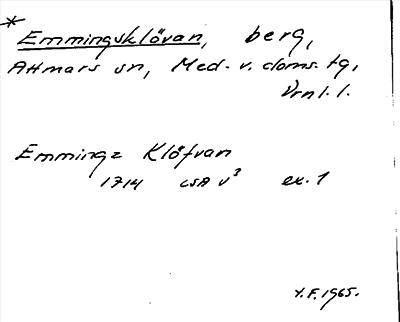 * Emmingsklövan, berg,
Attmars sn, Med. v. doms. tg,
Vrnl. l.
Emmingz Klöfvan
1714 LSA V³ ex. 1
Y. F. 1965.